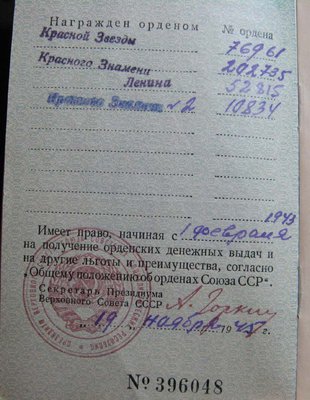 Награжден орденом № ордена
Красной Звезды 76961
Красного Знамени 202735
Ленина 52815
Красного Знамени №2 10834
1943
Имеет право, начиная с 1 февраля
на получение орденских денежных выдач и
на другие льготы и преимущества, согласно
„Общему положению об орденах Союза ССР".
Секретарь Президиума
Верховного Совета СССР А. Горкин
„19" ноября 1945 г.
№ 396048